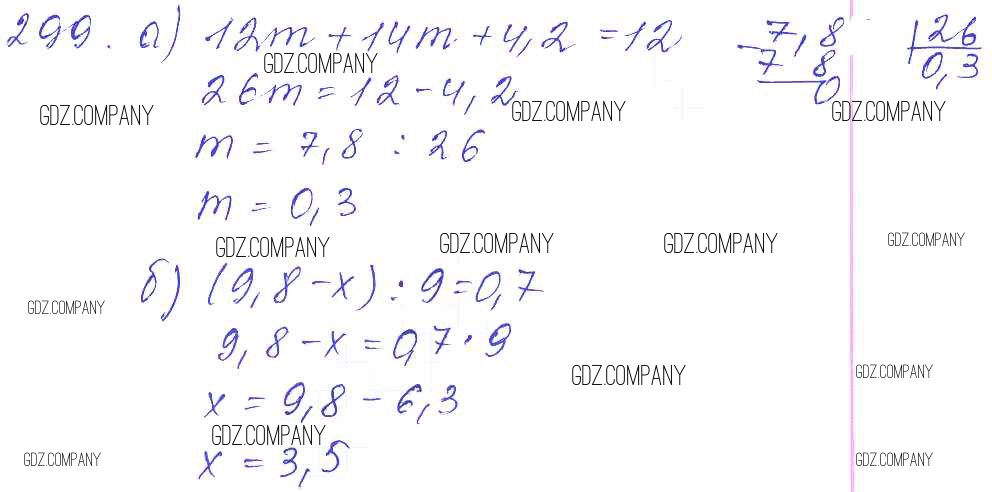 299. а) 12m + 14m + 4,2 = 12
7,8 | 26
- 7 8 | 0,3
0
GDZ.COMPANY
26m = 12 - 4,2
GDZ.COMPANY GDZ.COMPANY GDZ.COMPANY
m = 7,8 : 26
m = 0,3
GDZ.COMPANY GDZ.COMPANY GDZ.COMPANY GDZ.COMPANY
б) (9,8 - x) : 9 = 0,7
GDZ.COMPANY
9,8 - x = 0,7 · 9
GDZ.COMPANY GDZ.COMPANY
x = 9,8 - 6,3
GDZ.COMPANY
x = 3,5
GDZ.COMPANY GDZ.COMPANY